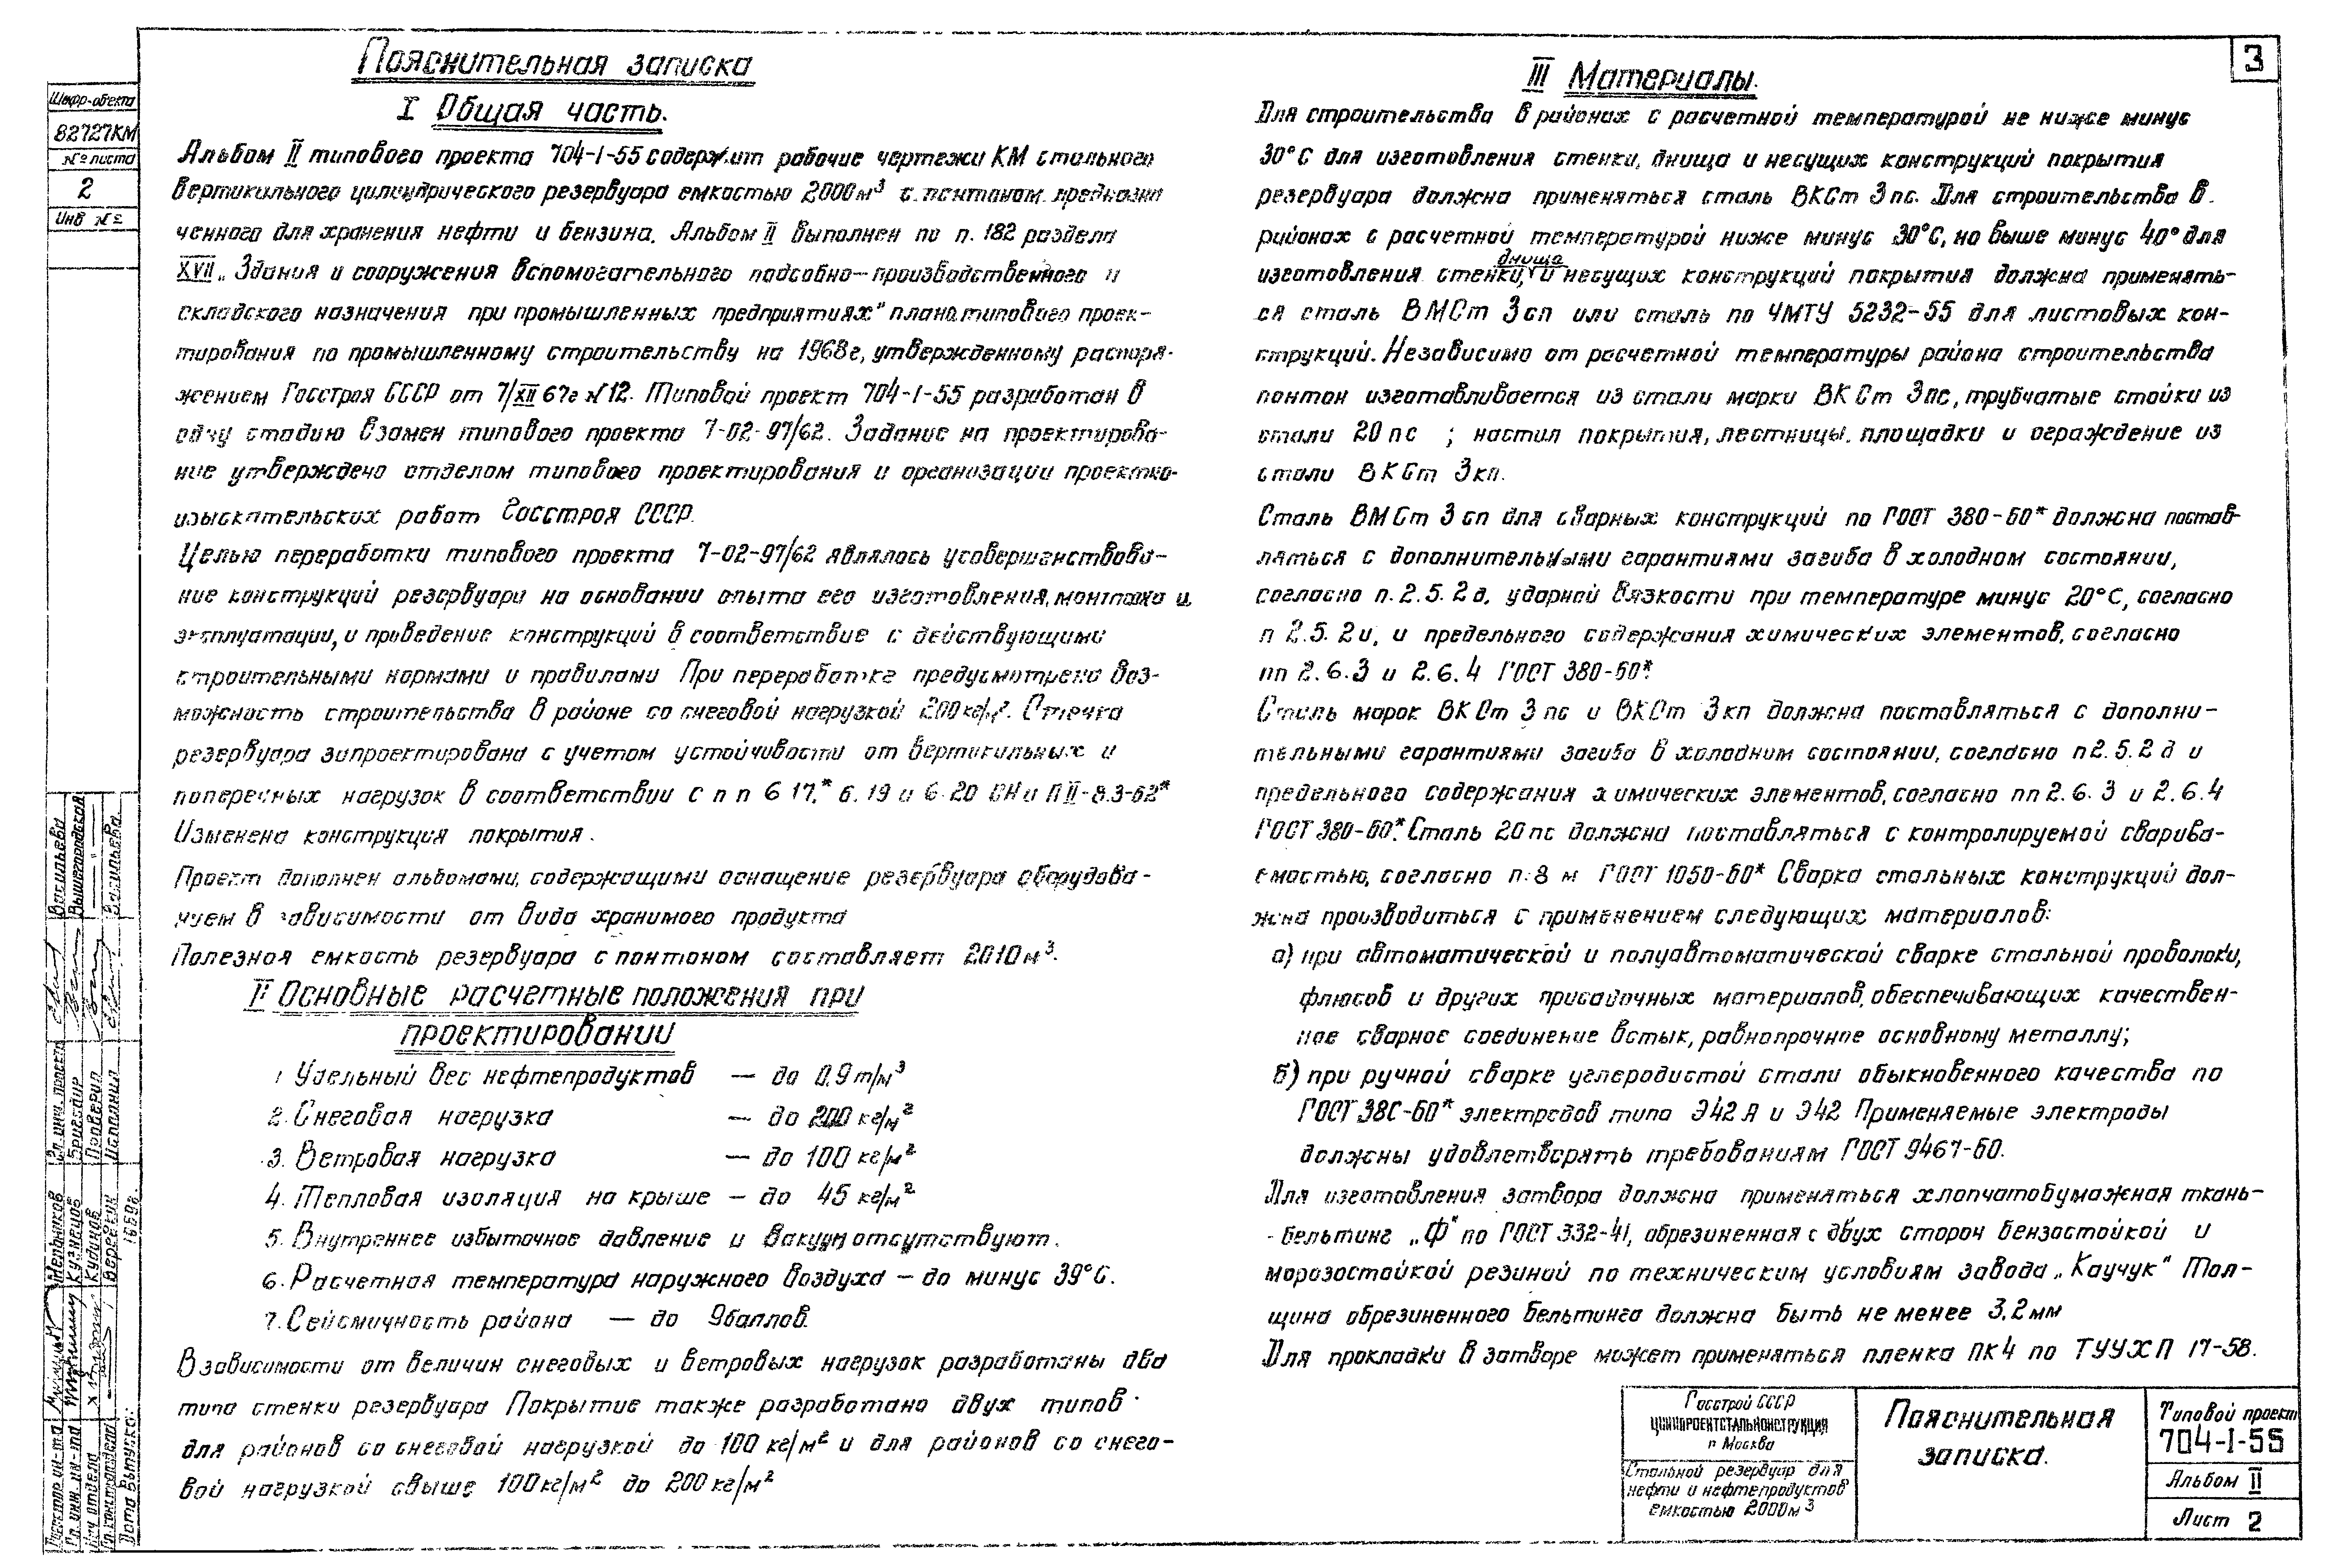 3
Шифр-объекта
82727КМ
№ листа
2
Инв №
Пояснительная записка
I Общая часть.
Альбом II типового проекта 704-1-55 содержит рабочие чертежи КМ стального
вертикального цилиндрического резервуара емкостью 2000м³ с понтоном предназна
ченного для хранения нефти и бензина. Альбом II выполнен по п. 182 раздела
XVII „Здания и сооружения вспомогательного подсобно-производственного и
складского назначения при промышленных предприятиях" плана типового проек-
тирования по промышленному строительству на 1968г, утвержденному распоря-
жением Госстроя СССР от 7/XII 67г №12. Типовой проект 704-1-55 разработан в
одну стадию взамен типового проекта 7-02-97/62. Задание на проектирова-
ние утверждено отделом типового проектирования и организации проектно-
изыскательских работ Госстроя СССР.
Целью переработки типового проекта 7-02-97/62 являлось усовершенствова-
ние конструкций резервуара на основании опыта его изготовления, монтажа и
эксплуатации, и приведение конструкций в соответствие с действующими
строительными нормами и правилами При переработке предусмотрена воз-
можность строительства в районе со снеговой нагрузкой 200кг/м². Стенка
резервуара запроектирована с учетом устойчивости от вертикальных и
поперечных нагрузок в соответствии с п п 6 17.* 6. 19 и 6-20 СНиП II-В.3-62*
Изменена конструкция покрытия.
Проект дополнен альбомами, содержащими оснащение резервуара оборудова-
нием в зависимости от вида хранимого продукта
Полезная емкость резервуара с понтоном составляет 2010м³.
II Основные расчетные положения при
проектировании
1 Удельный вес нефтепродуктов — до 0,9т/м³
2. Снеговая нагрузка — до 200 кг/м²
3. Ветровая нагрузка — до 100 кг/м²
4. Тепловая изоляция на крыше — до 45 кг/м²
5. Внутреннее избыточное давление и вакуум отсутствуют.
6. Расчетная температура наружного воздуха — до минус 39°С.
7. Сейсмичность района — до 9баллов.
В зависимости от величин снеговых и ветровых нагрузок разработаны два
типа стенки резервуара Покрытие также разработано двух типов
для районов со снеговой нагрузкой до 100 кг/м² и для районов со снего-
вой нагрузкой свыше 100кг/м² до 200кг/м²
III Материалы.
Для строительства в районах с расчетной температурой не ниже минус
30°С для изготовления стенки, днища и несущих конструкций покрытия
резервуара должна применяться сталь ВКСт 3пс. Для строительства в
районах с расчетной температурой ниже минус 30°С, но выше минус 40° для
изготовления стенки, днища и несущих конструкций покрытия должна применять-
ся сталь ВМСт 3сп или сталь по ЧМТУ 5232-55 для листовых кон-
струкций. Независимо от расчетной температуры района строительства
понтон изготавливается из стали марки ВКСт 3пс, трубчатые стойки из
стали 20пс ; настил покрытия, лестницы. площадки и ограждение из
стали ВКСт 3кп.
Сталь ВМСт 3 сп для сварных конструкций по ГОСТ 380-60* должна постав-
ляться с дополнительными гарантиями загиба в холодном состоянии,
согласно п. 2.5.2д, ударной вязкости при температуре минус 20°С, согласно
п 2.5.2и, и предельного содержания химических элементов, согласно
пп 2.6.3 и 2.6.4 ГОСТ 380-60*.
Сталь марок ВКСт 3 пс и ВКСт 3кп должна поставляться с дополни-
тельными гарантиями загиба в холодном состоянии, согласно п2.5.2д и
предельного содержания химических элементов, согласно пп 2.6.3 и 2.6.4
ГОСТ 380-60*. Сталь 20пс должна поставляться с контролируемой сварива-
емостью, согласно п. 8 м ГОСТ 1050-60* Сварка стальных конструкций дол-
жна производиться с применением следующих материалов:
а) при автоматической и полуавтоматической сварке стальной проволоки,
флюсов и других присадочных материалов, обеспечивающих качествен-
ное сварное соединение встык, равнопрочное основному металлу;
б) при ручной сварке углеродистой стали обыкновенного качества по
ГОСТ 380-60* электродов типа Э42А и Э42 Применяемые электроды
должны удовлетворять требованиям ГОСТ 9467-60.
Для изготовления затвора должна применяться хлопчатобумажная ткань-
- бельтинг „Ф" по ГОСТ 332-41, обрезиненная с двух сторон бензостойкой и
морозостойкой резиной по техническим условиям завода „Каучук" Тол-
щина обрезиненного бельтинга должна быть не менее 3,2мм
Для прокладки в затворе может применяться пленка ПК4 по ТУУХП 17-58.
Васильева
Вышегородская
— " —
Васильева
Гл. инж. проекта
Бригадир
Проверил
Исполнил
Мельников
Кузнецов
Кудинов
1969г.
Директор ин-та
Гл. инж. ин-та
Нач отдела
Гл. констр. отдела
Дата выпуска:
Госстрой СССР
ЦНИИПРОЕКТСТАЛЬКОНСТРУКЦИЯ
г. Москва
Стальной резервуар для
нефти и нефтепродуктов
емкостью 2000м³
Пояснительная
записка.
Типовой проект
704-1-55
Альбом II
Лист 2